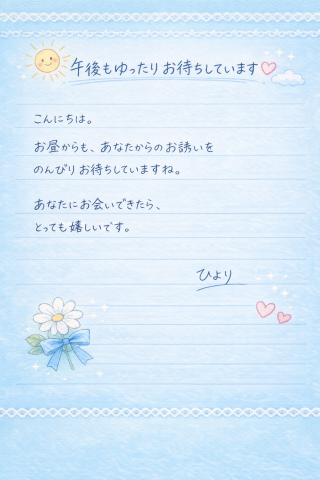 午後もゆったりお待ちしています♡
こんにちは。
お昼からも、あなたからのお誘いを
のんびりお待ちしていますね。
あなたにお会いできたら、
とっても嬉しいです。
ひより